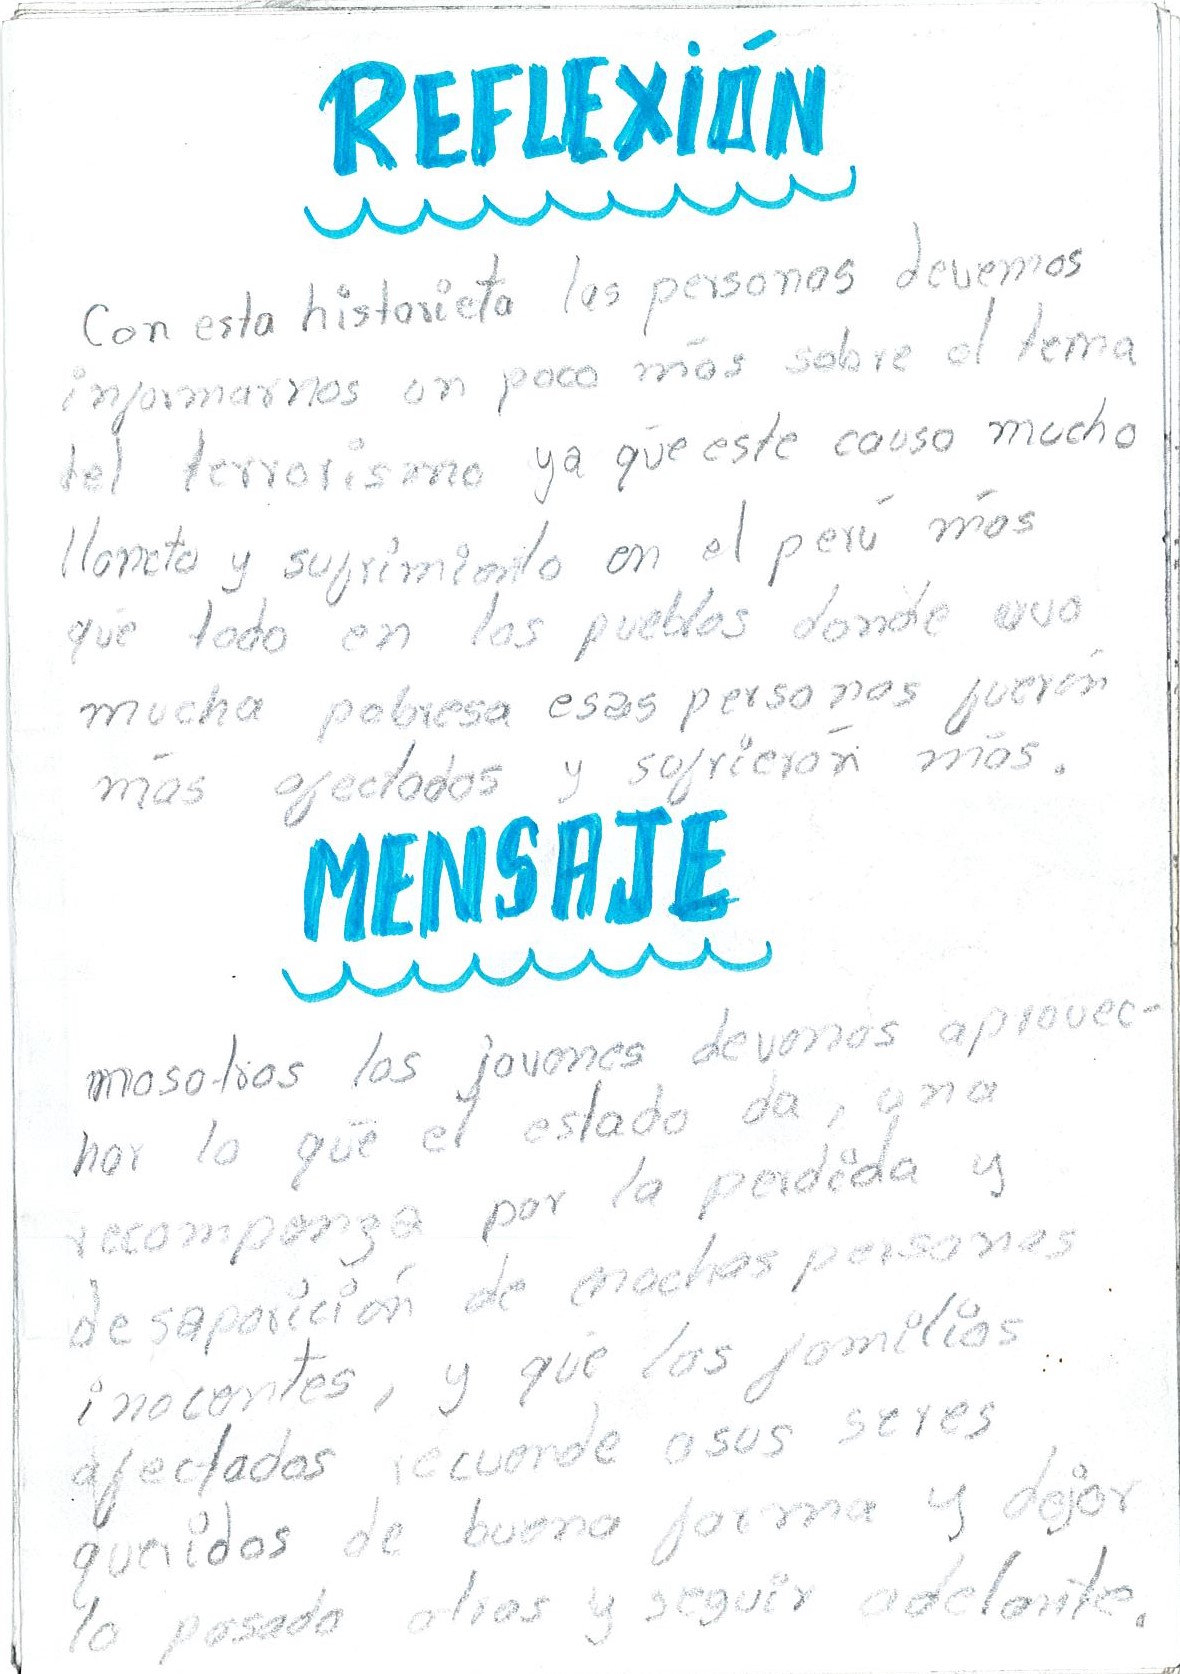 REFLEXIÓN
Con esta historieta las personas devemos
informarnos un poco más sobre el tema
del terrorismo ya que este causo mucho
llancto y sufrimiento en el perú más
que todo en los pueblos donde uvo
mucha pobresa esas personas fuerón
más afectados y sufrierón más.
MENSAJE
mosotros los jovenes devemos aprovec-
har lo que el estado da, una
recompenza por la perdida y
desaparición de muchas personas
inocentes, y que las familias
afectadas recuerde asus seres
queridos de buena forma y dejar
lo pasado atras y seguir adelante.